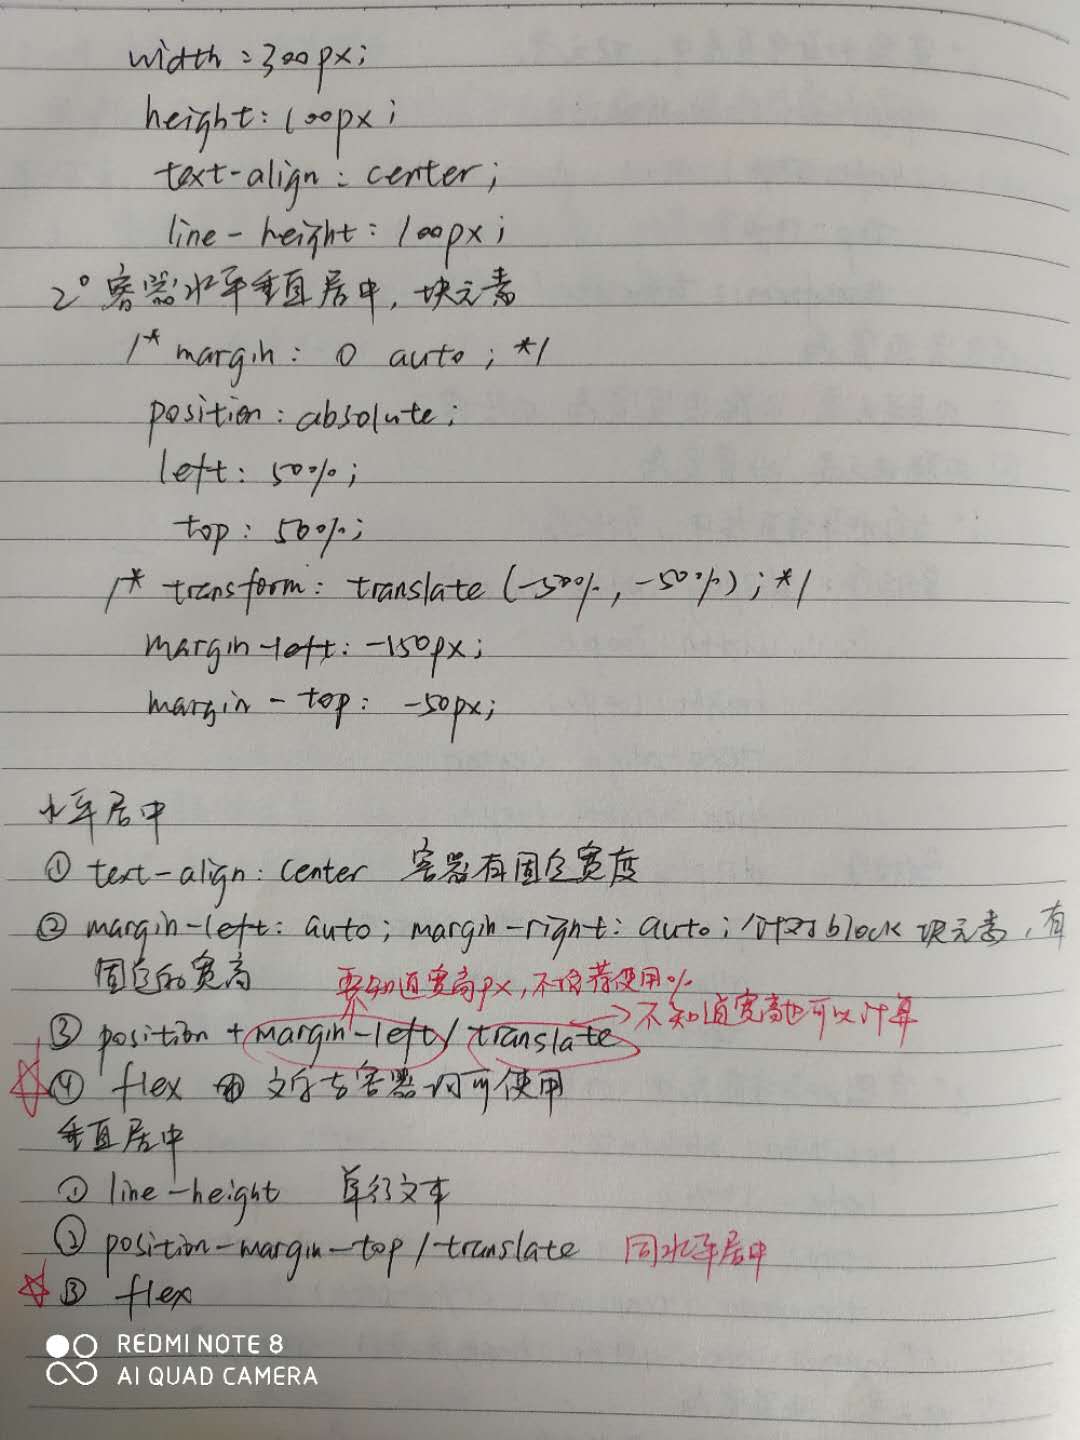 width:300px;
height:100px;
text-align:center;
line-height:100px;
2° 容器水平垂直居中,块元素
/* margin: 0 auto; */
position:absolute;
left: 50%;
top: 50%;
/* transform: translate(-50%,-50%); */
margin-left: -150px;
margin-top: -50px;
水平居中
① text-align:center 容器有固定宽度
② margin-left: auto; margin-right: auto; 针对block 块元素,有
固定的宽高
要知道宽高px,不推荐使用%
③ position + margin-left / translate → 不知道宽高也可以计算
④ flex 文字与容器均可使用
垂直居中
① line-height 单行文本
② position-margin-top/translate 同水平居中
③ flex
REDMI NOTE 8
AI QUAD CAMERA